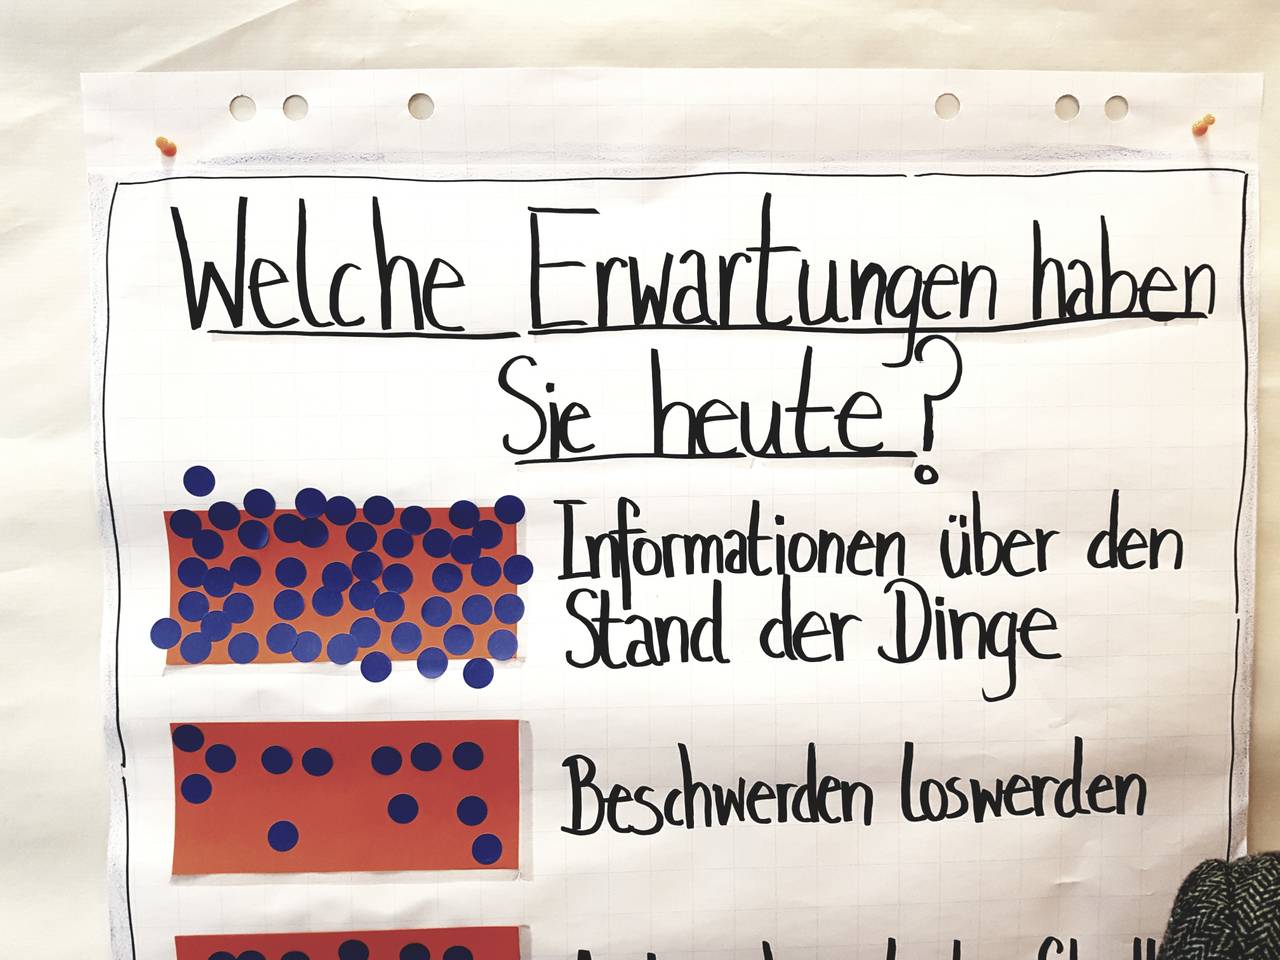 Welche Erwartungen haben
Sie heute?
Informationen über den
Stand der Dinge
Beschwerden loswerden